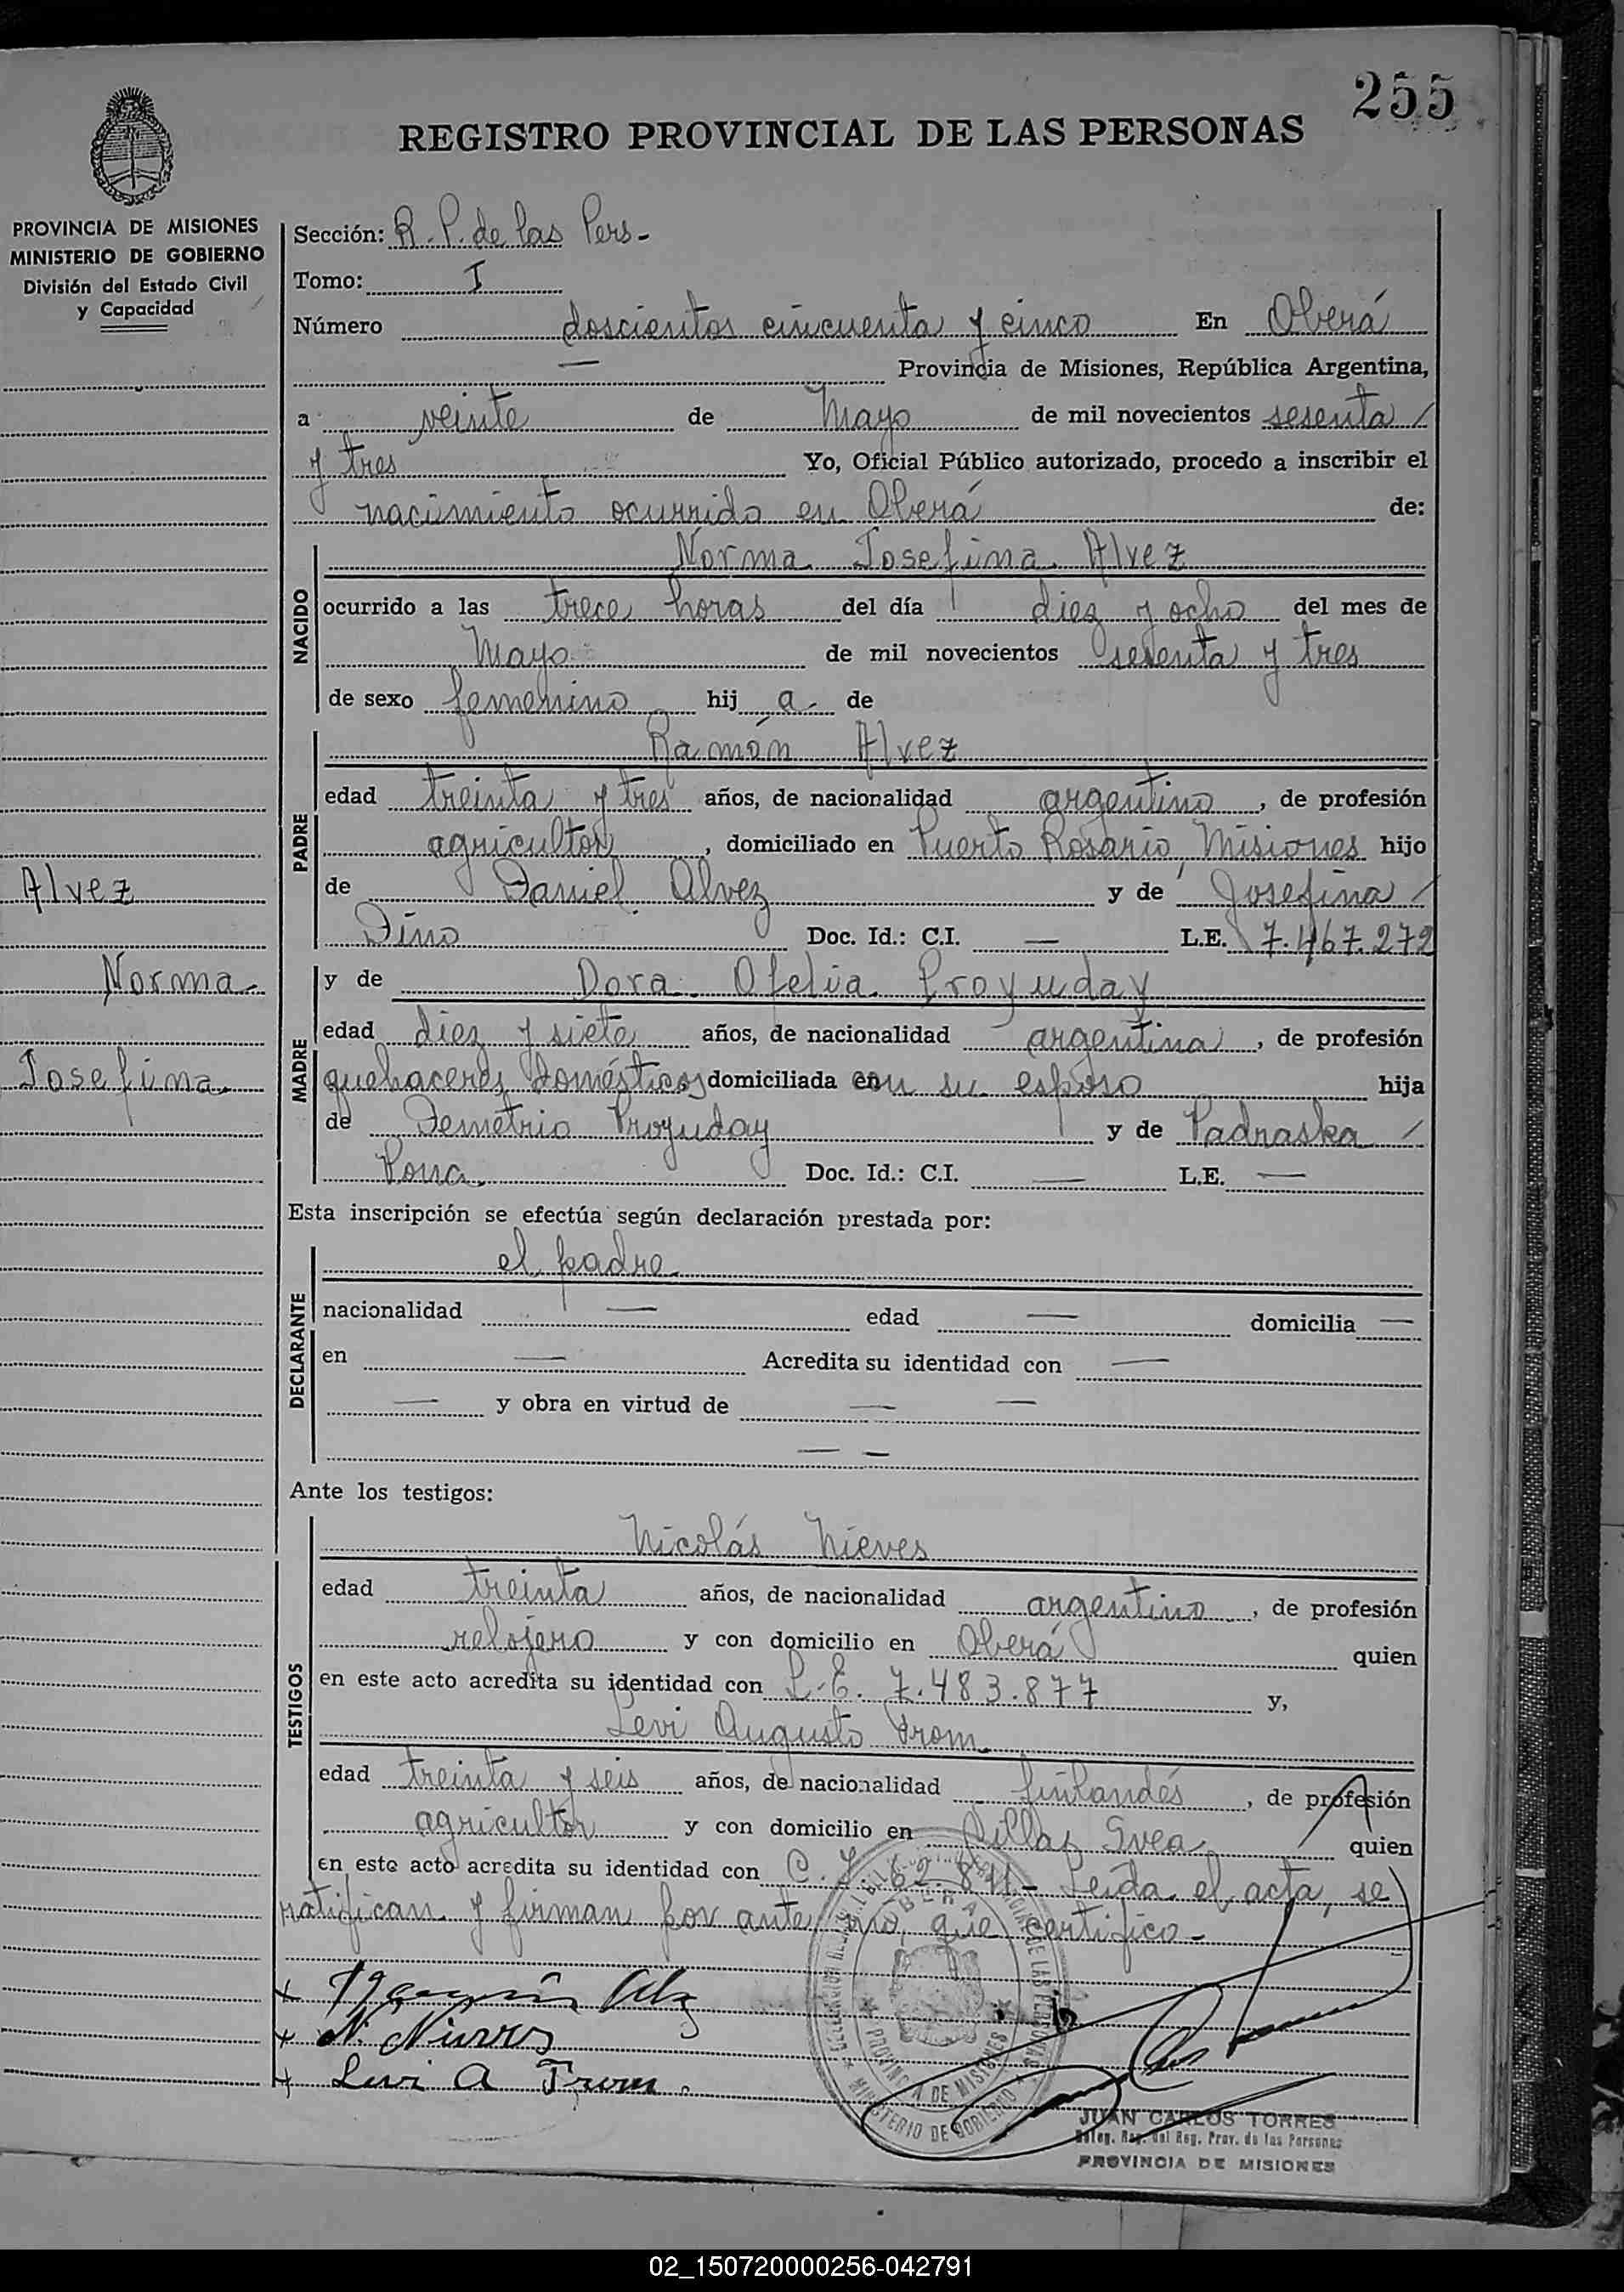 255
REGISTRO PROVINCIAL DE LAS PERSONAS
PROVINCIA DE MISIONES
MINISTERIO DE GOBIERNO
División del Estado Civil
y Capacidad
Alvez
Norma
Josefina
Sección: R. P. de las Pers-
Tomo: I
Número doscientos cincuenta y cinco En Oberá
— Provincia de Misiones, República Argentina,
a veinte de Mayo de mil novecientos sesenta /
y tres Yo, Oficial Público autorizado, procedo a inscribir el
nacimiento ocurrido en Oberá de:
NACIDO
Norma Josefina Alvez
ocurrido a las trece horas del día diez y ocho del mes de
Mayo de mil novecientos sesenta y tres
de sexo femenino hij a- de
PADRE
Ramón Alvez
edad treinta y tres años, de nacionalidad argentino, de profesión
agricultor, domiciliado en Puerto Rosario, Misiones hijo
de Daniel Alvez y de Josefina /
Dino Doc. Id.: C.I. — L.E. 7.467.272
MADRE
y de Dora Ofelia Proyuday
edad diez y siete años, de nacionalidad argentina, de profesión
quehaceres domésticos domiciliada en con su esposo hija
de Demetrio Proyuday y de Padraska /
Doc. Id.: C.I. — L.E. —
Esta inscripción se efectúa según declaración prestada por:
DECLARANTE
el padre
nacionalidad — edad — domicilia —
en — Acredita su identidad con —
— y obra en virtud de — —
— —
Ante los testigos:
TESTIGOS
Nicolás Nieves
edad treinta años, de nacionalidad argentino, de profesión
relojero y con domicilio en Oberá quien
en este acto acredita su identidad con L.E. 7.483.877 y,
Levi Augusto From
edad treinta y seis años, de nacionalidad finlandés, de profesión
agricultor y con domicilio en Villa Svea quien
en este acto acredita su identidad con C.I. 62.811- Leída el acta, se
ratifican y firman por ante mi, que certifico-
+ Ramón Alvz
+ N. Nieves
+ Levi A From.
PROVINCIA DE MISIONES
MINISTERIO DE GOBIERNO
JUAN CARLOS TORRES
Deleg. Reg. del Reg. Prov. de las Personas
PROVINCIA DE MISIONES
02_150720000256-042791